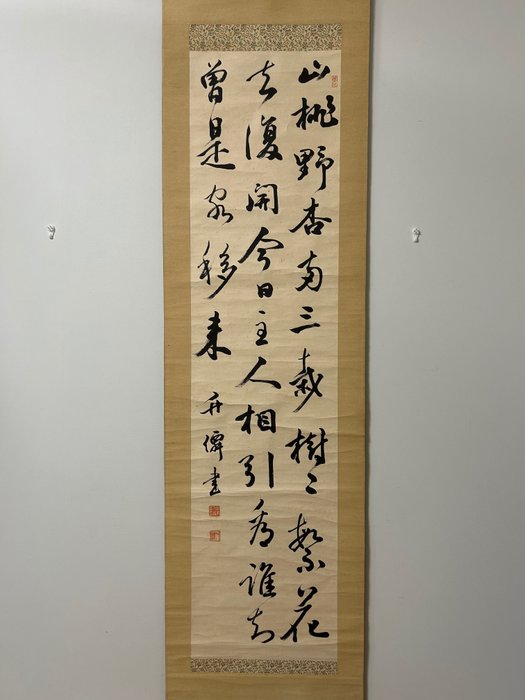 山桃野杏両三栽樹〻繁花
去復開今日主人相引看誰知
曾是客移来
書